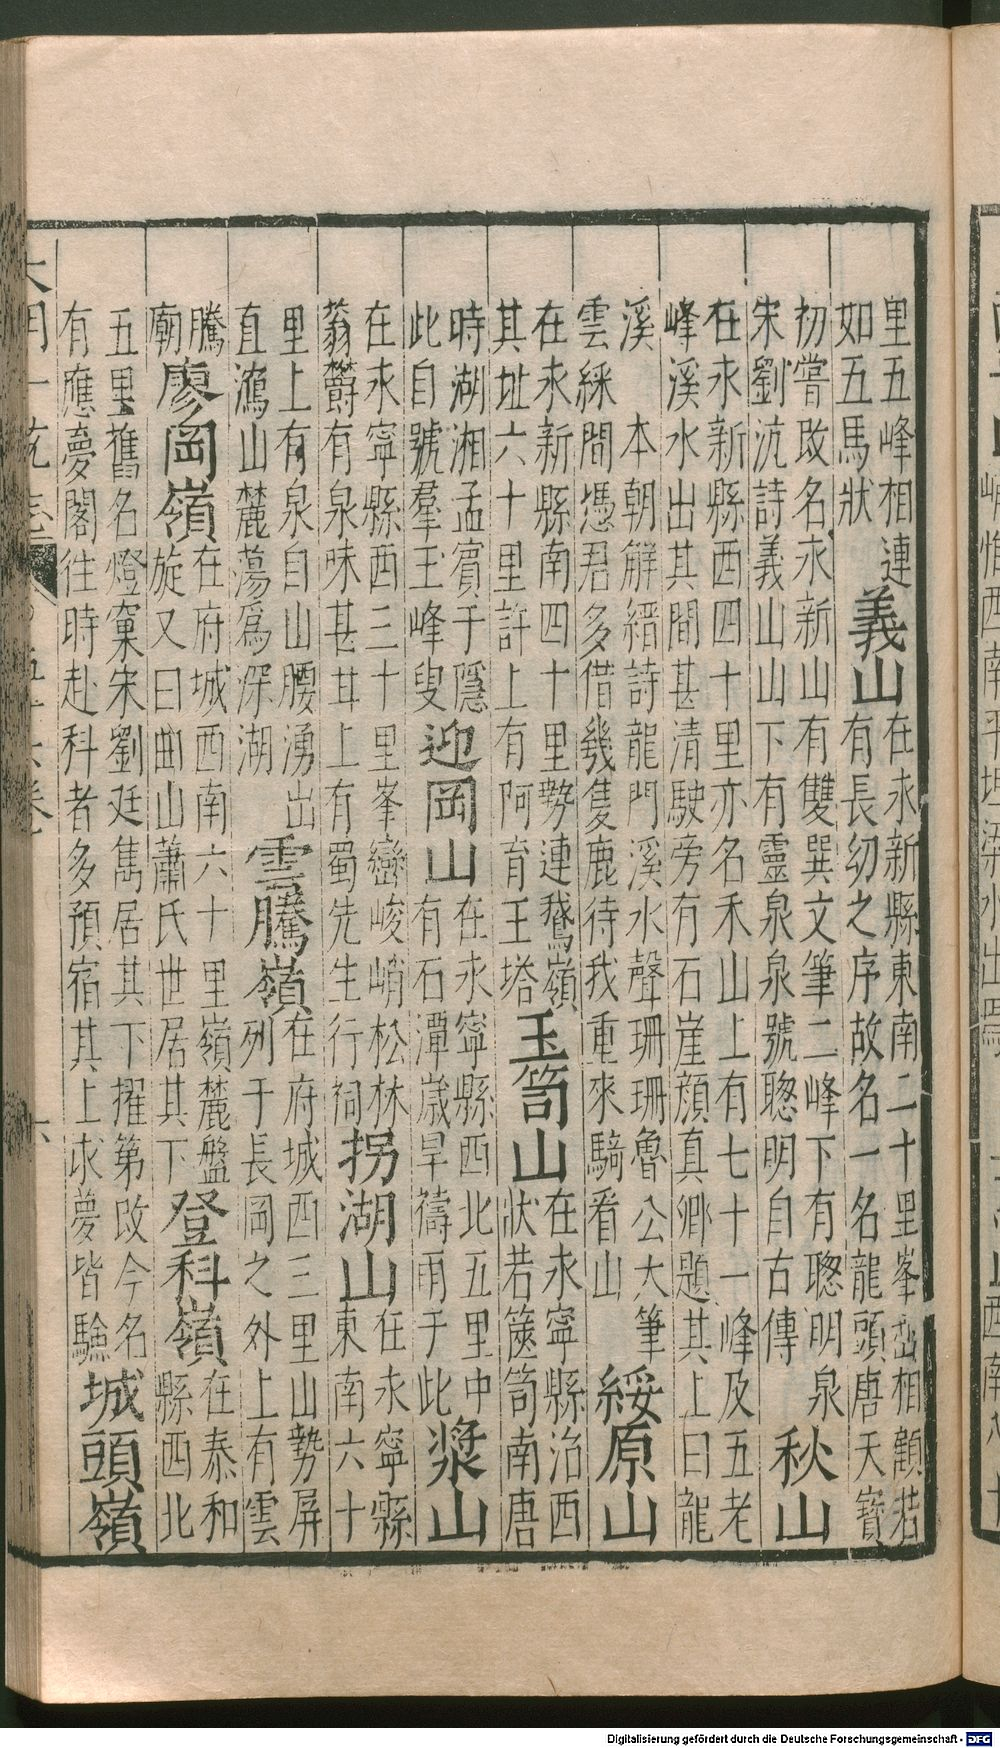 里五峰相連
如五馬狀
義山
在永新縣東南二十里峯巒相顧若
有長幼之序故名一名龍頭唐天寶
初嘗改名永新山有雙巽文筆二峰下有聦明泉
宋劉沆詩義山山下有靈泉泉號聦明自古傳
秋山
在永新縣西四十里亦名禾山上有七十一峰及五老
峰溪水出其間甚清駛旁有石崖顔真卿題其上曰龍
溪 本朝解縉詩龍門溪水聲珊珊魯公大筆
雲綵間憑君多借幾隻鹿待我重來騎看山
綏原山
在永新縣南四十里勢連鵞嶺
其址六十里許上有阿育王塔
玉笥山
在永寧縣治西
狀若篋笥南唐
時湖湘孟賓于隱
此自號羣玉峰叟
迎岡山
在永寧縣西北五里中
有石潭歲旱禱雨于此
漿山
在永寧縣西三十里峯巒峻峭松林
蓊欝有泉味甚甘上有蜀先生行祠
拐湖山
在永寧縣
東南六十
里上有泉自山腰湧出
直瀉山麓蕩爲深湖
雲騰嶺
在府城西三里山勢屏
列于長岡之外上有雲
騰
廟
廖岡嶺
在府城西南六十里嶺麓盤
旋又曰曲山蕭氏世居其下
登科嶺
在泰和
縣西北
五里舊名燈窠宋劉廷雋居其下擢第改今名
有應夢閣往時赴科者多預宿其上求夢皆驗
城頭嶺
大明一統志 五十六卷 六
Digitalisierung gefördert durch die Deutsche Forschungsgemeinschaft - DFG